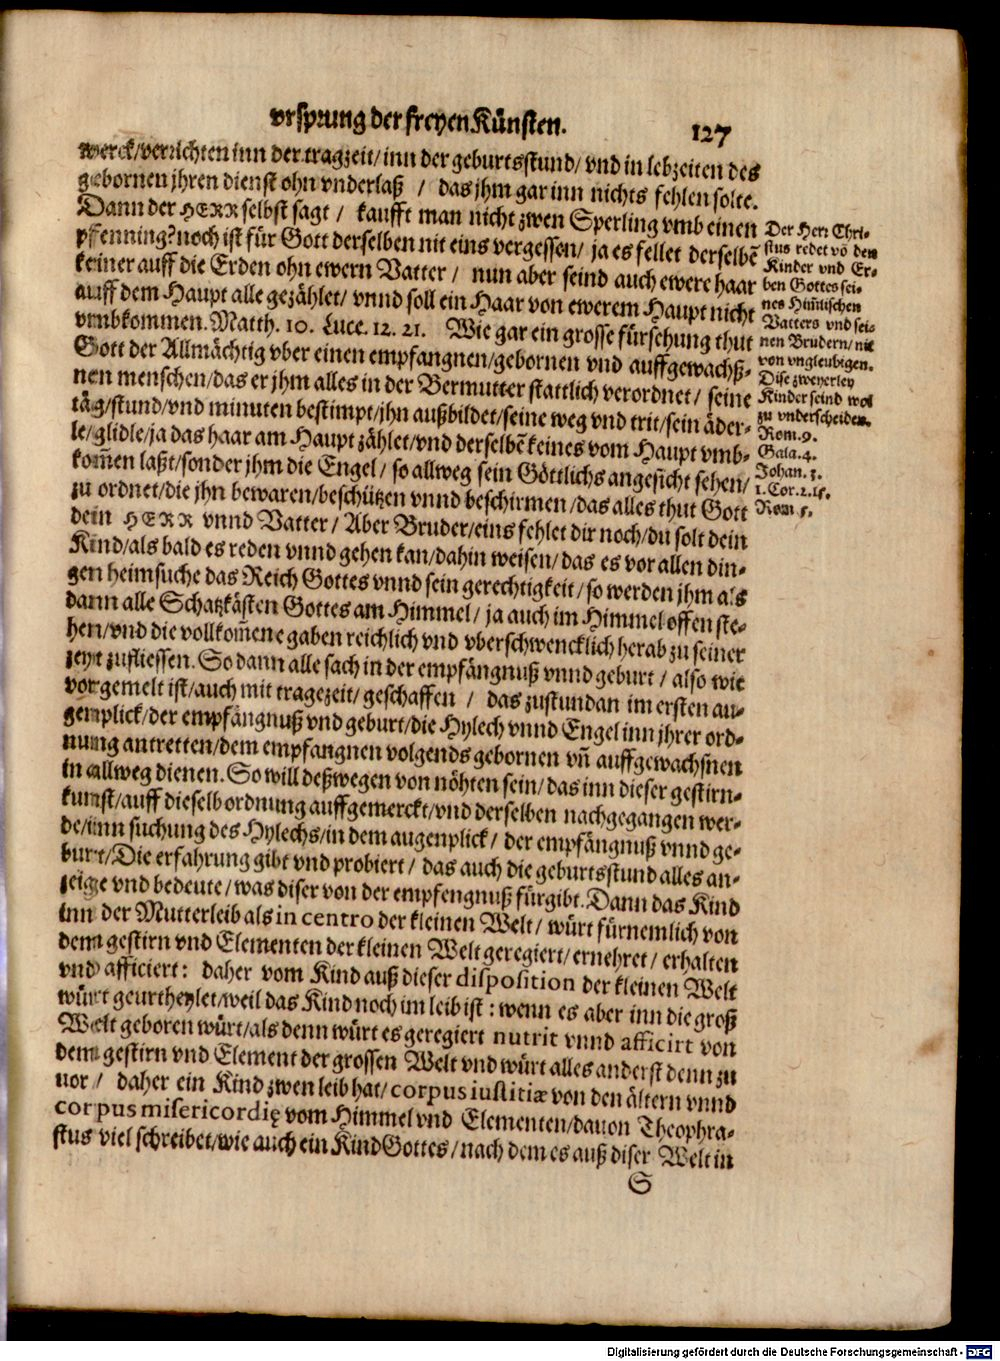 vrsprung der freyen Künsten. 127
werck/verrichten inn der tragzeit/inn der geburtsstund/ vnd in lebzeiten des
gebornen jhren dienst ohn vnderlaß / das jhm gar inn nichts fehlen solte.
Dann der HERR selbst sagt / kaufft man nicht zwen Sperling vmb einen
pfenning? noch ist für Gott derselben nit eins vergessen/ ja es fellet derselbẽ
keiner auff die Erden ohn ewern Vatter / nun aber seind auch ewere haar
auff dem Haupt alle gezählet/ vnnd soll ein Haar von ewerem Haupt nicht
vmbkommen. Matth. 10. Luce. 12. 21. Wie gar ein grosse fürsehung thut
Gott der Allmächtig vber einen empfangnen/gebornen vnd auffgewachß-
nen menschen/das er jhm alles in der Bermutter stattlich verordnet / seine
täg/stund/vnd minuten bestimpt/jhn außbildet/seine weg vnd trit/sein äder-
le/glidle/ja das haar am Haupt zählet/vnd derselbẽ keines vom Haupt vmb-
kom̃en laßt/sonder jhm die Engel / so allweg sein Göttlichs angesicht sehen/
zu ordnet/die jhn bewaren/beschützen vnnd beschirmen /das alles thut Gott
dein HERR vnnd Vatter / Aber Bruder/eins fehlet dir noch/du solt dein
Kind/als bald es reden vnnd gehen kan/dahin weisen/das es vor allen din-
gen heimsuche das Reich Gottes vnnd sein gerechtigkeit/so werden jhm als
dann alle Schatzkästen Gottes am Himmel / ja auch im Himmel offen ste-
hen/vnd die vollkom̃ene gaben reichlich vnd vberschwencklich herab zu seiner
zeyt zufliessen. So dann alle sach in der empfängnuß vnnd geburt / also wie
vorgemelt ist/auch mit tragezeit/geschaffen / das zustundan im ersten au-
genplick/der empfängnuß vnd geburt/die Hylech vnnd Engel inn jhrer ord-
nung antretten/dem empfangnen volgends gebornen vñ auffgewachsnen
in allweg dienen. So will deßwegen von nöhten sein/das inn dieser gestirn-
kunst/auff dieselb ordnung auffgemerckt/vnd derselben nachgegangen wer-
de/inn suchung des Hylechs/in dem augenplick / der empfängnuß vnnd ge-
burt/Die erfahrung gibt vnd probiert / das auch die geburtsstund alles an-
zeige vnd bedeute/was diser von der empfengnuß fürgibt. Dann das Kind
inn der Mutterleib als in centro der kleinen Welt/ würt fürnemlich von
dem gestirn vnd Elementen der kleinen Welt geregiert/ernehret/ erhalten
vnd afficiert: daher vom Kind auß dieser disposition der kleinen Welt
würt geurtheylet/weil das Kind noch im leib ist : wenn es aber inn die groß
Welt geboren würt/als denn würt es geregiert nutrit vnnd afficirt von
dem gestirn vnd Element der grossen Welt vnd würt alles anderst denn zu
uor / daher ein Kind zwen leib hat/corpus iustitiæ von den ältern vnnd
corpus misericordię vom Himmel vnd Elementen/dauon Theophra-
stus viel schreibet/wie auch ein Kind Gottes/nach dem es auß diser Welt in
S
Der Herꝛ Chri-
stus redet võ den
Kinder vnd Er-
ben Gottes sei-
nes Him̃lischen
Vatters vnd sei-
nen Brudern/nit
von vngleubigen.
Dise zweyerley
Kinder seind wol
zu vnderscheiden.
Rom. 9.
Gala. 4.
Johan. 3.
1. Cor. 2. 15.
Rom. 5.
Digitalisierung gefördert durch die Deutsche Forschungsgemeinschaft - DFG